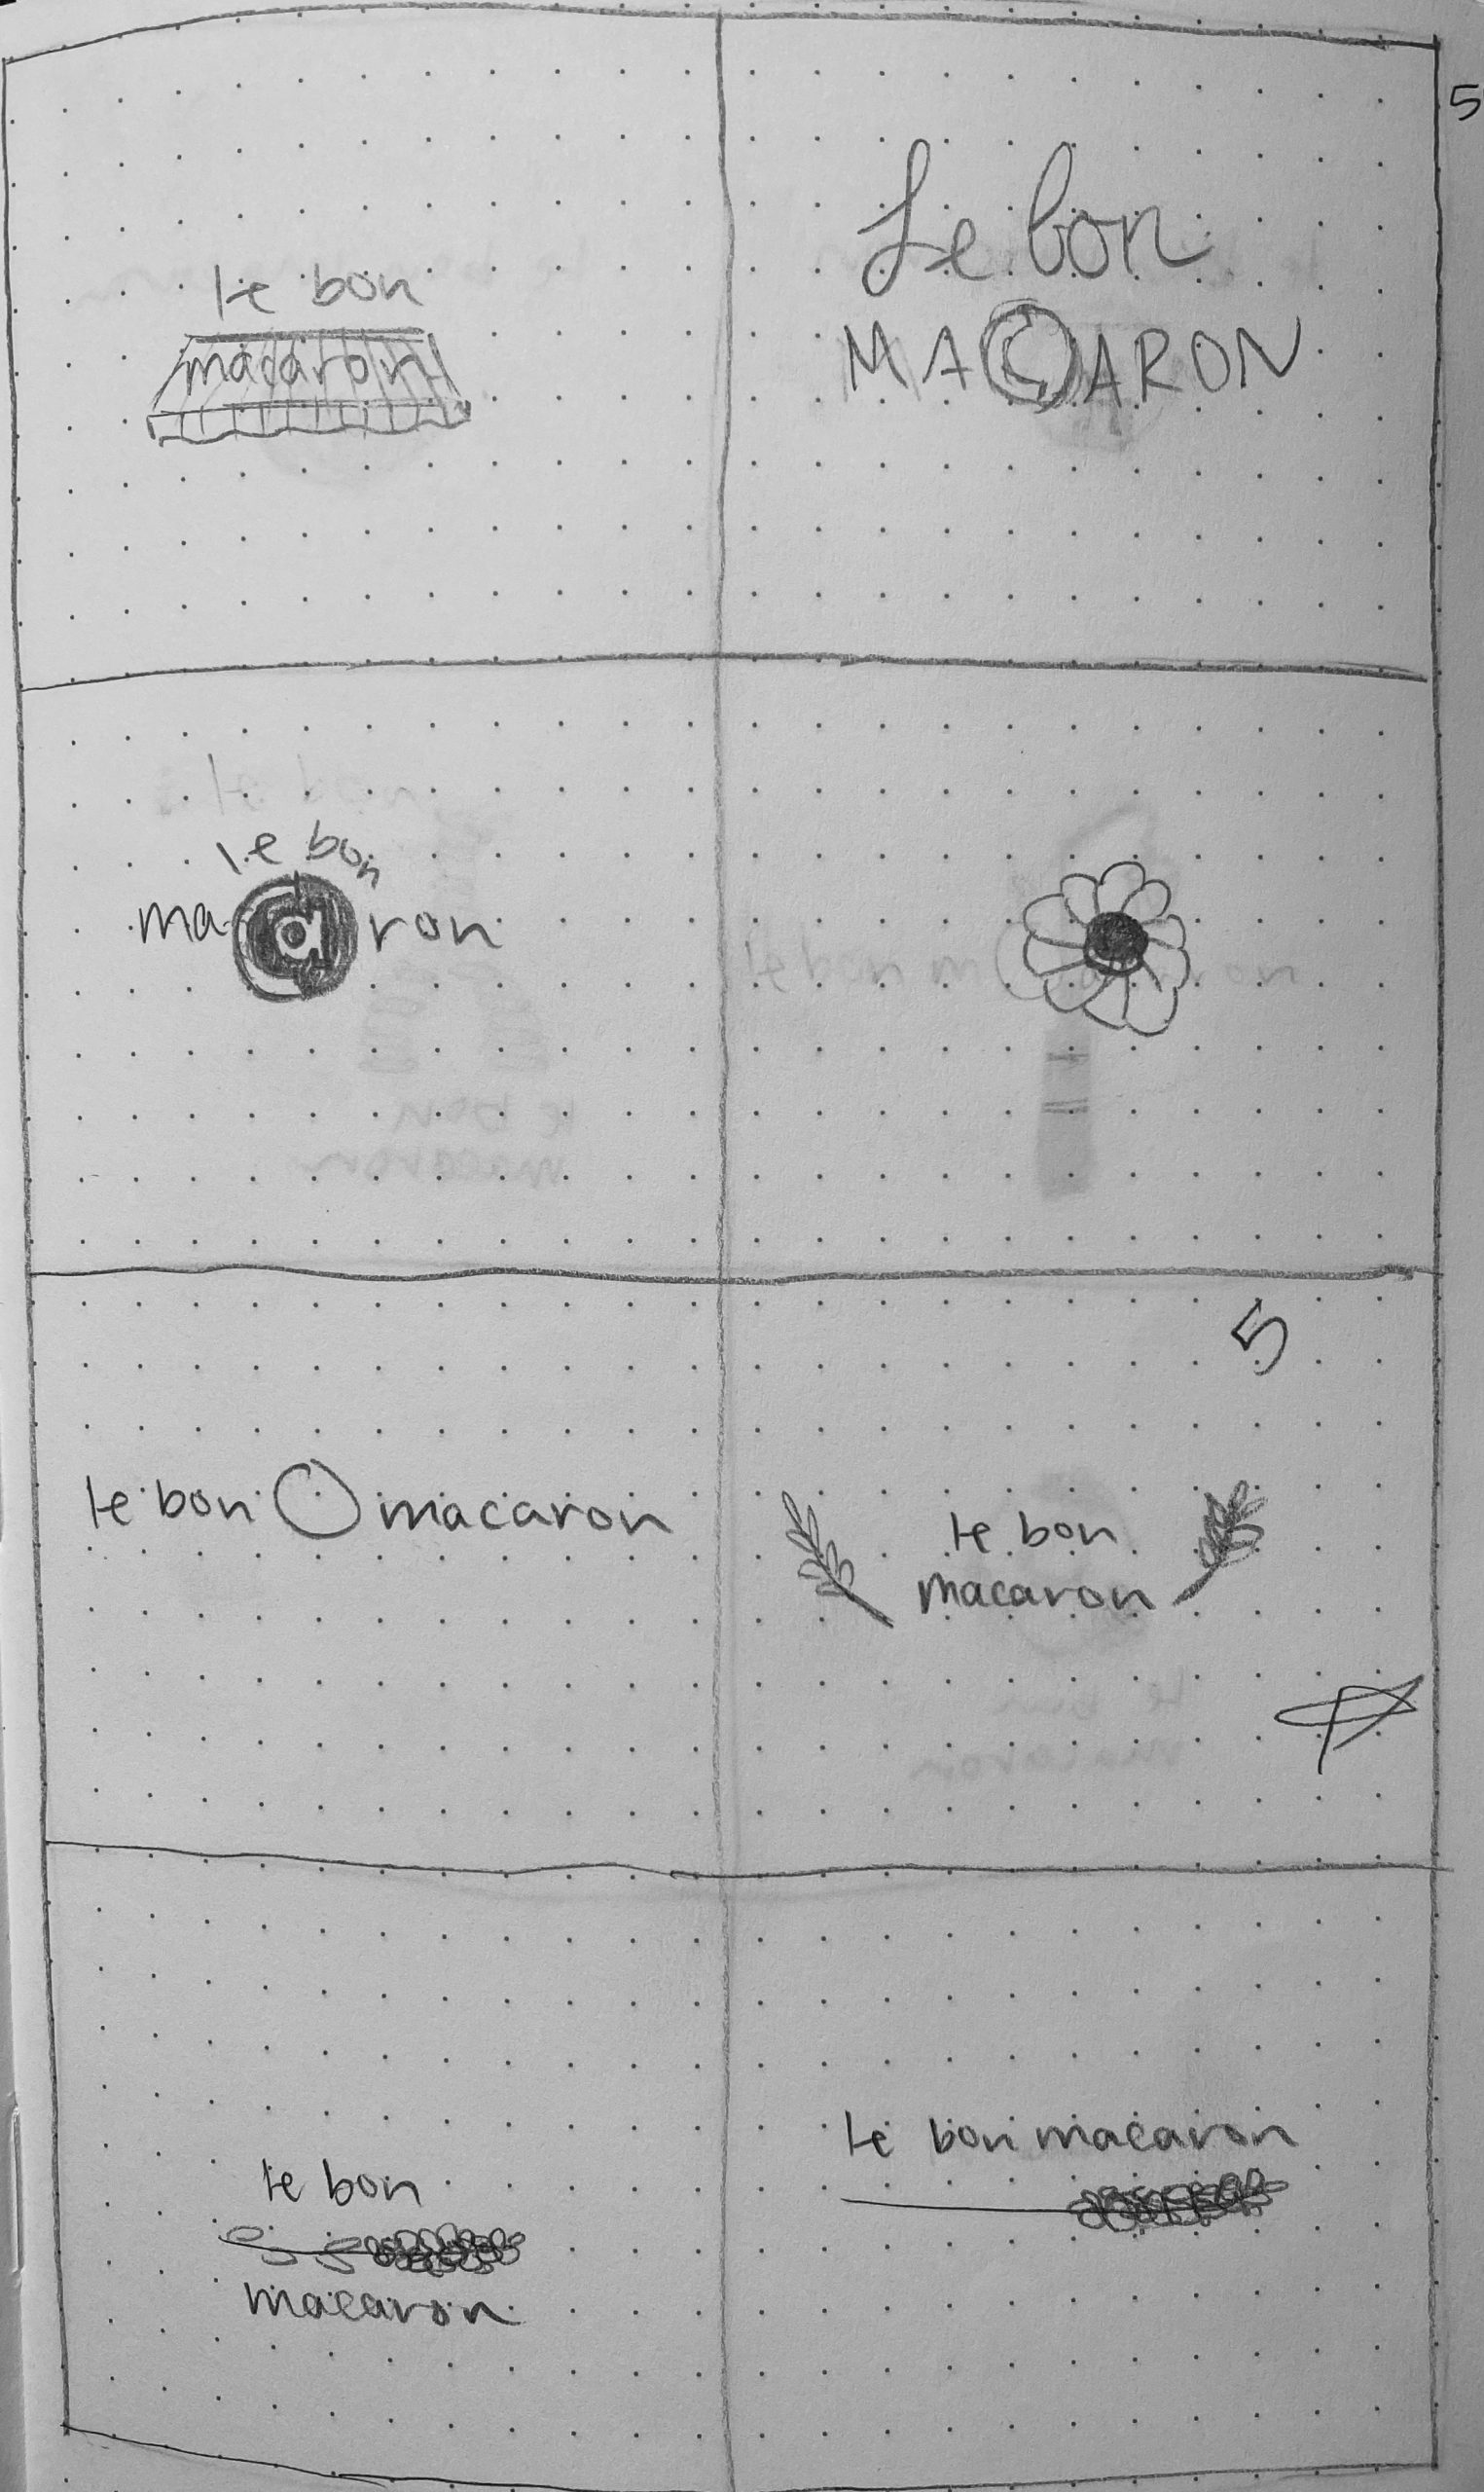 5
le bon
macaron
Le bon
MACARON
le bon
macaron
5
le bon macaron
le bon
macaron
le bon
macaron
le bon macaron